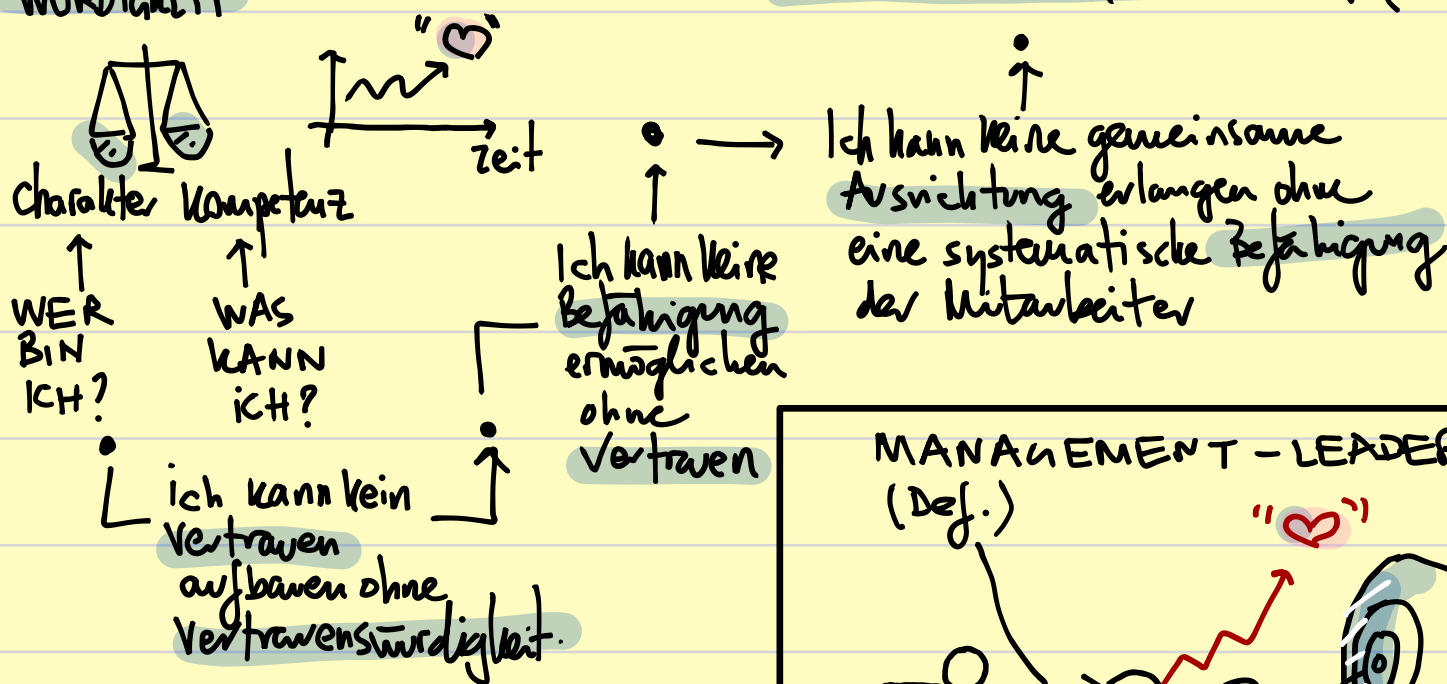 WÜRDIGKEIT
Zeit
Charakter Kompetenz
WER
BIN
ICH?
WAS
KANN
iCH?
ich kann kein
Vertrauen
aufbauen ohne
Vertrauenswürdigkeit.
Ich kann keine
Befähigung
ermöglichen
ohne
Vertrauen
Ich kann keine gemeinsame
Ausrichtung erlangen ohne
eine systematische Befähigung
der Mitarbeiter
MANAGEMENT - LEADER
(Def.)